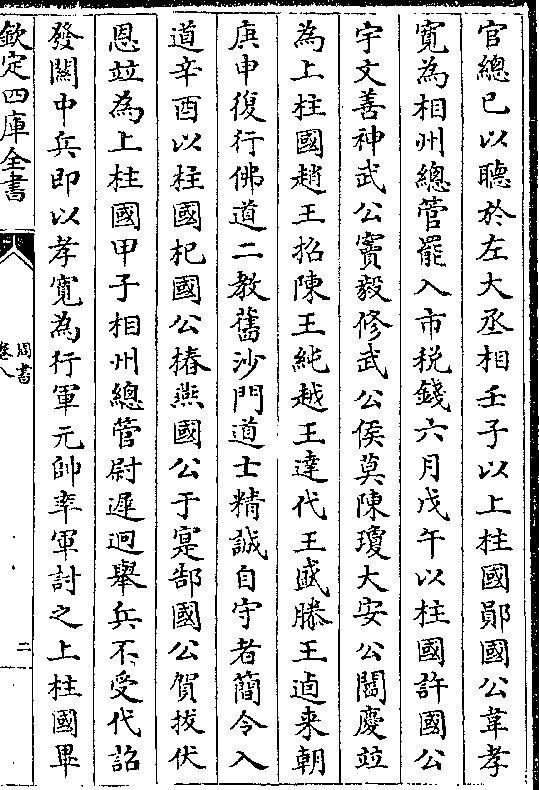 官總已以聽於左大丞相壬子以上柱國鄖國公韋孝
寛為相州總管罷入市税錢六月戊午以柱國許國公
宇文善神武公竇毅修武公侯莫陳瓊大安公閻慶竝
為上柱國趙王招陳王純越王達代王盛滕王逌来朝
庚申復行佛道二教舊沙門道士精誠自守者簡令入
道辛酉以柱國杞國公椿燕國公于寔郜國公賀拔伏
恩竝為上柱國甲子相州總管尉遲迥舉兵不受代詔
發闗中兵即以孝寛為行軍元帥率軍討之上柱國畢
欽定四庫全書
周書
卷八
二